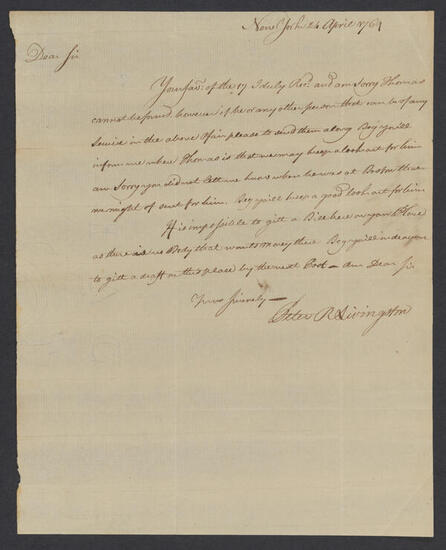 New York 24 April 1764
Dear Sir
Your fav.r of the 17 I duly Rec.d and am Sorry Thomas
cannot be found however if he or any other person that can be of any
Service in the above Afair please to send them along Beg you'll
inform me where Thomas is that we may keep a look out for him
am Sorry you did not Lett me know when he was at Boston that
we might of sent for him. Beg you'll keep a good look out for him
It is impossible to gitt a Bill here on your Place
as there is no Body that wants money there Beg you'll indeavour
to gitt a draft on this place by the next Post — Am Dear Sir
Yours Sincerely —
Peter R Livingston